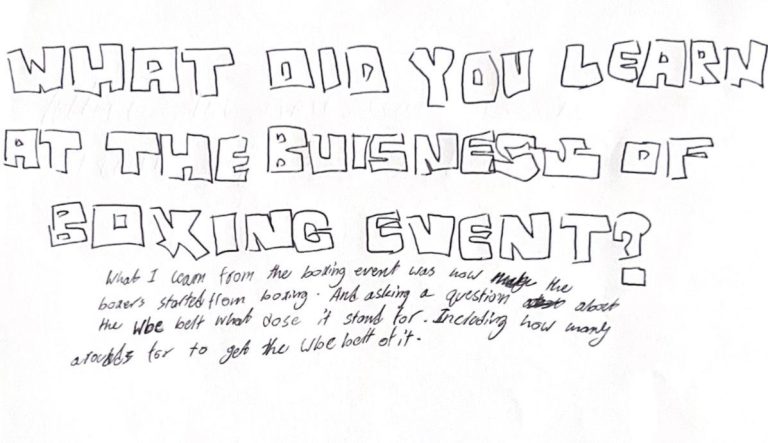 WHAT DID YOU LEARN
AT THE BUISNESS OF
BOXING EVENT?
What I learn from the boxing event was how the
boxers started from boxing. And asking a question about
the wbe belt what dose it stand for. Including how many
for to get the wbe belt of it.